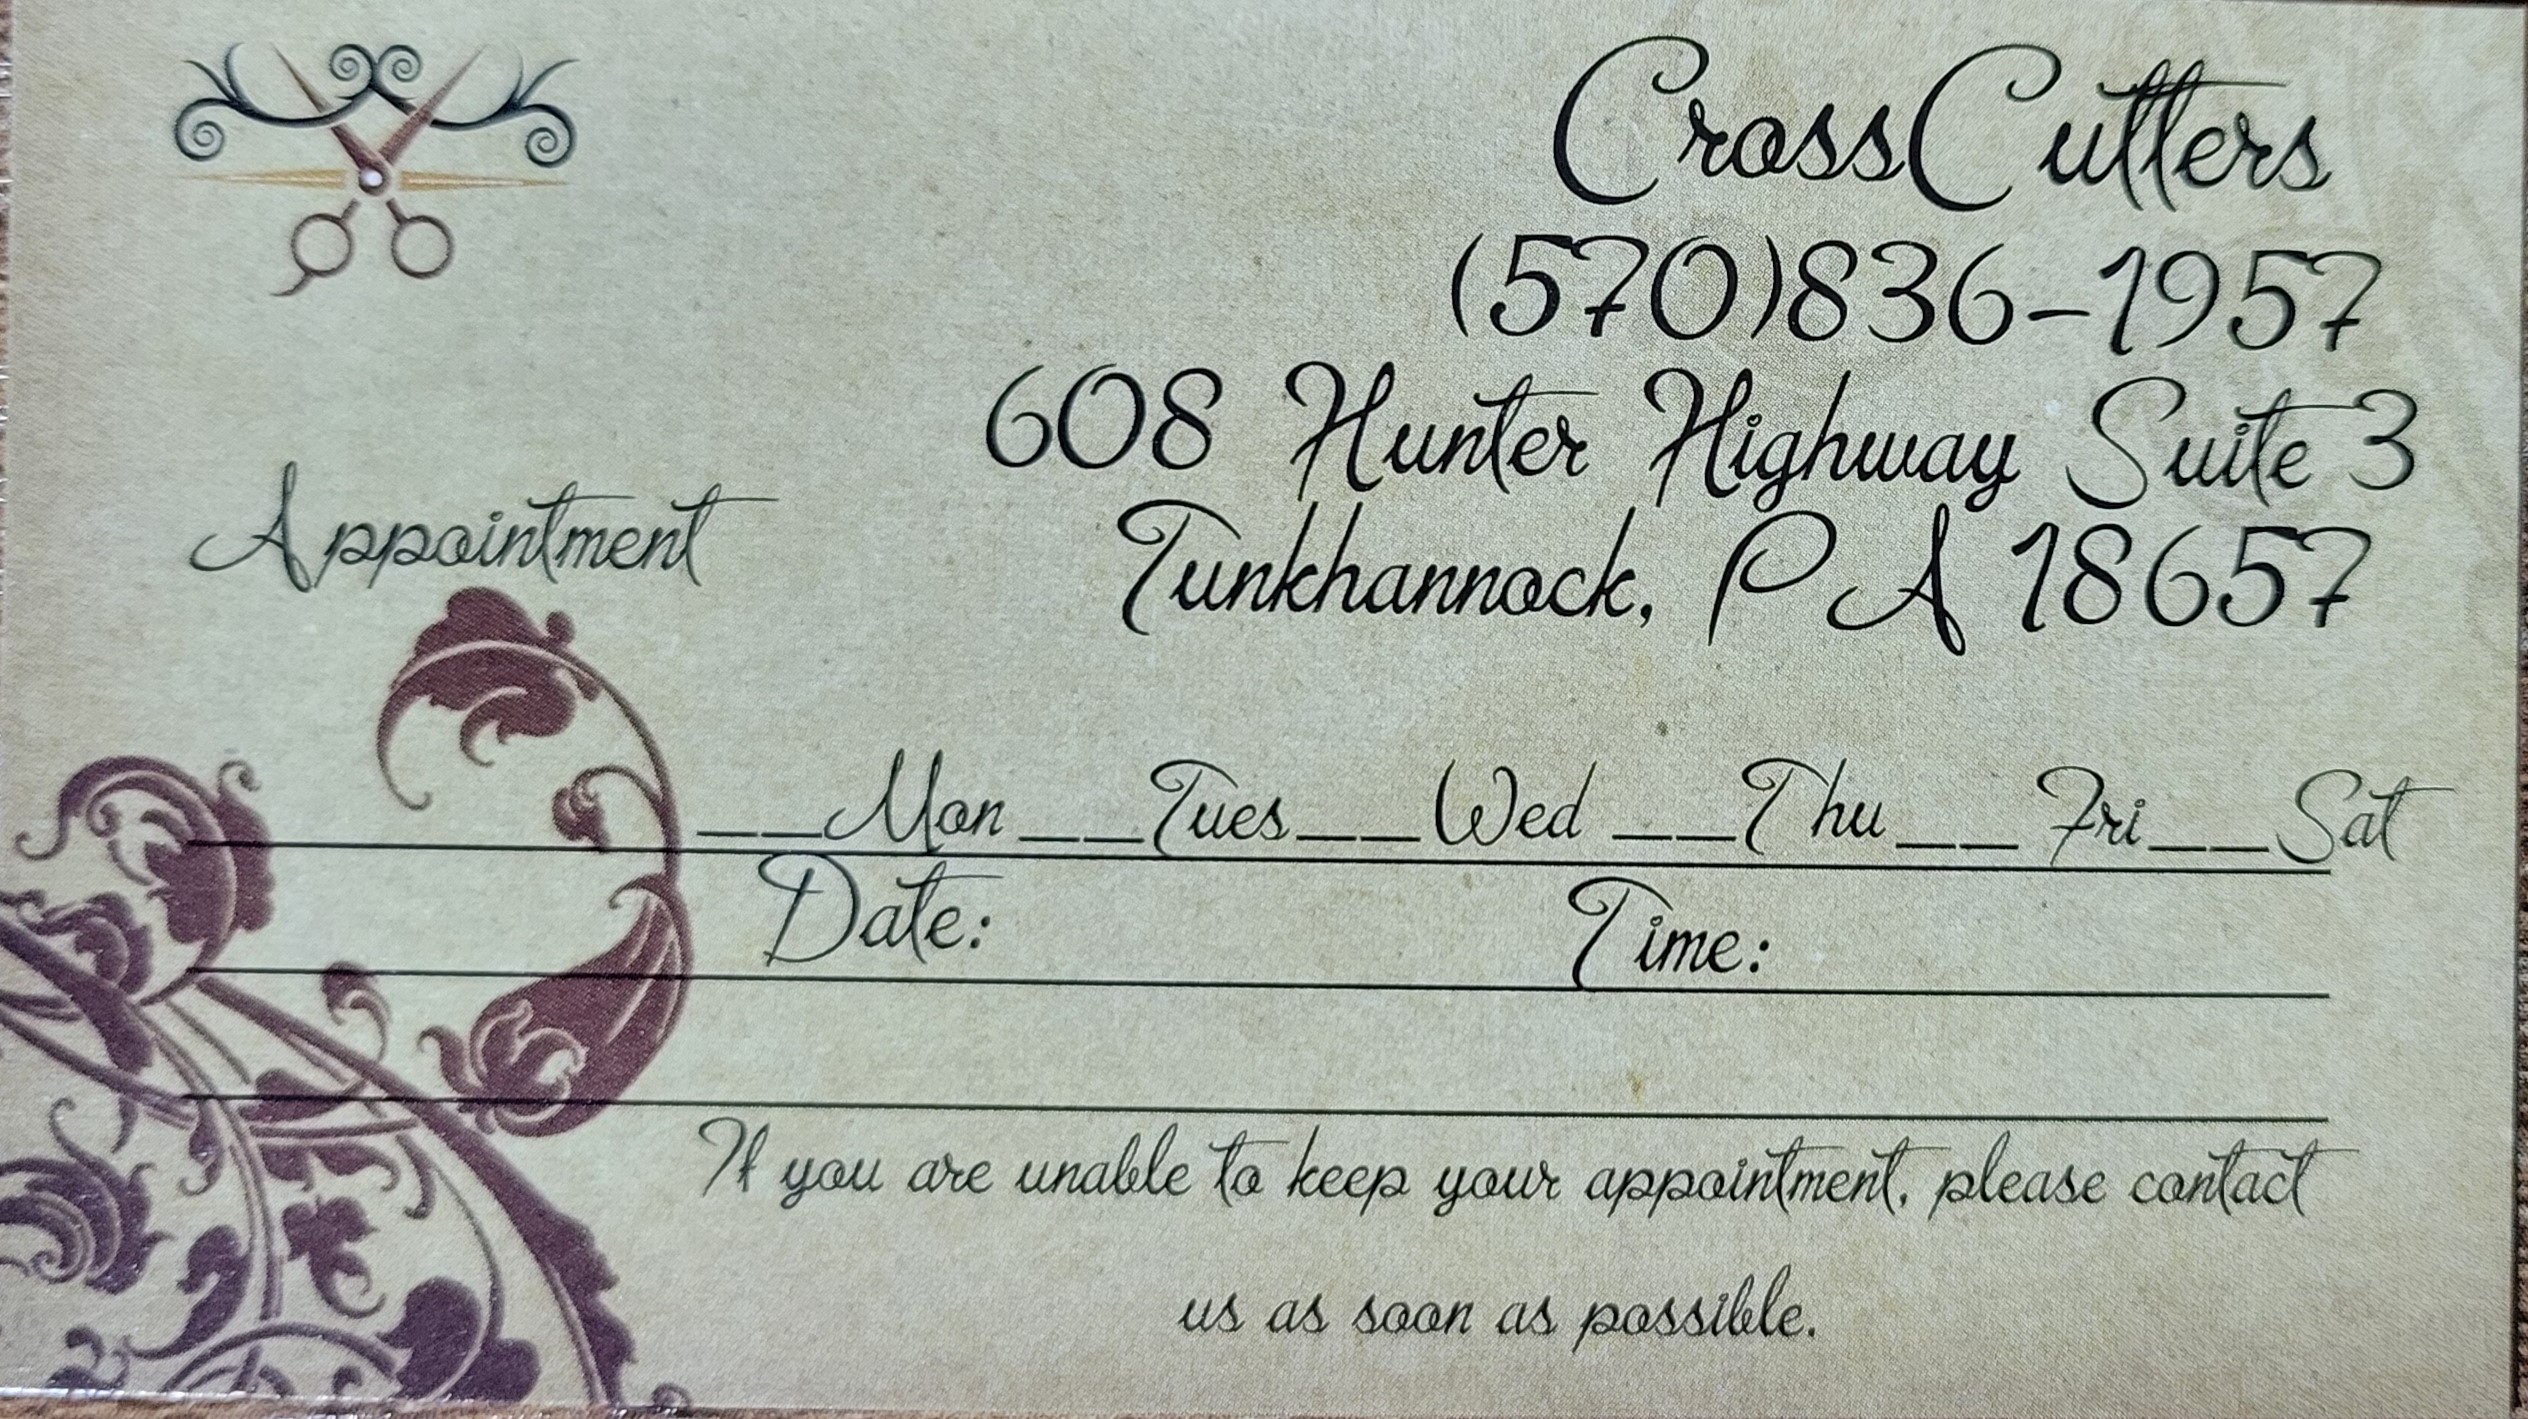 CrossCutters
(570)836-1957
608 Hunter Highway Suite 3
Tunkhannock, PA 18657
Appointment
__Mon __Tues__Wed __Thu__ Fri__Sat
Date: Time:
If you are unable to keep your appointment, please contact
us as soon as possible.